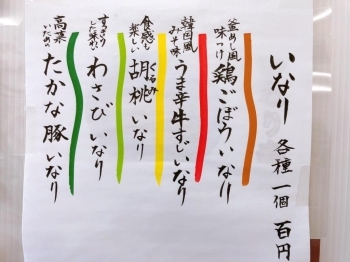 いなり 各種一個 百円
釜めし風
味つけ
鶏ごぼういなり
韓国風
みそ味
うま辛牛すじいなり
食感も
楽しい
胡桃いなり
くるみ
すっきり
した味わい
わさびいなり
高菜
いための
たかな豚いなり